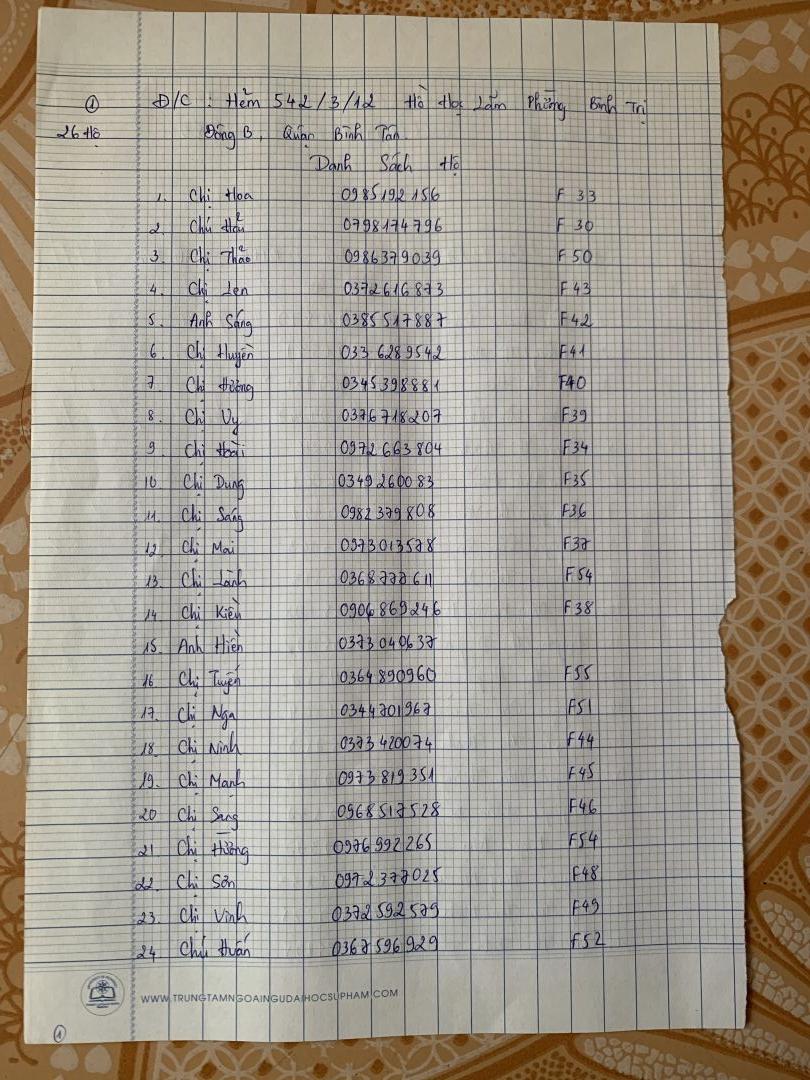 ① Đ/C : Hẻm 542/3/12 Hồ Học Lãm Phường Bình Trị
26 Hộ Đông B, Quận Bình Tân
Danh Sách Hộ
1. Chị Hoa 0985192156 F 33
2. Chú Hẩu 0798174796 F 30
3. Chị Thảo 0986379039 F 50
4. Chị Len 0372616873 F43
5. Anh Sáng 0385517887 F42
6. Chị Huyền 033 6289542 F41
7. Chị Hường 0345398881 F40
8. Chị Vy 0376718207 F39
9. Chị Hoài 0972 663 804 F34
10 Chị Dung 0349260083 F35
11. Chị Sáng 0982 379 808 F36
12. Chị Mai 0973013578 F37
13. Chị Lành 0368777611 F54
14 Chị Kiều 0906 869246 F38
15. Anh Hiền 0373040637
16 Chị Tuyến 0364 890960 F55
17. Chị Nga 0344701967 F51
18. Chị Ninh 0373 420074 F44
19. Chị Mạnh 0973 819 351 F45
20 Chị Sang 0968517528 F46
21 Chị Hường 0976 992 265 F54
22. Chị Sơn 0972377025 F48
23. Chị Vinh 0372 592 579 F49
24 Chú Huấn 0367596929 F52
WWW.TRUNGTAMNGOAINGUDAIHOCSUPHAM.COM
①